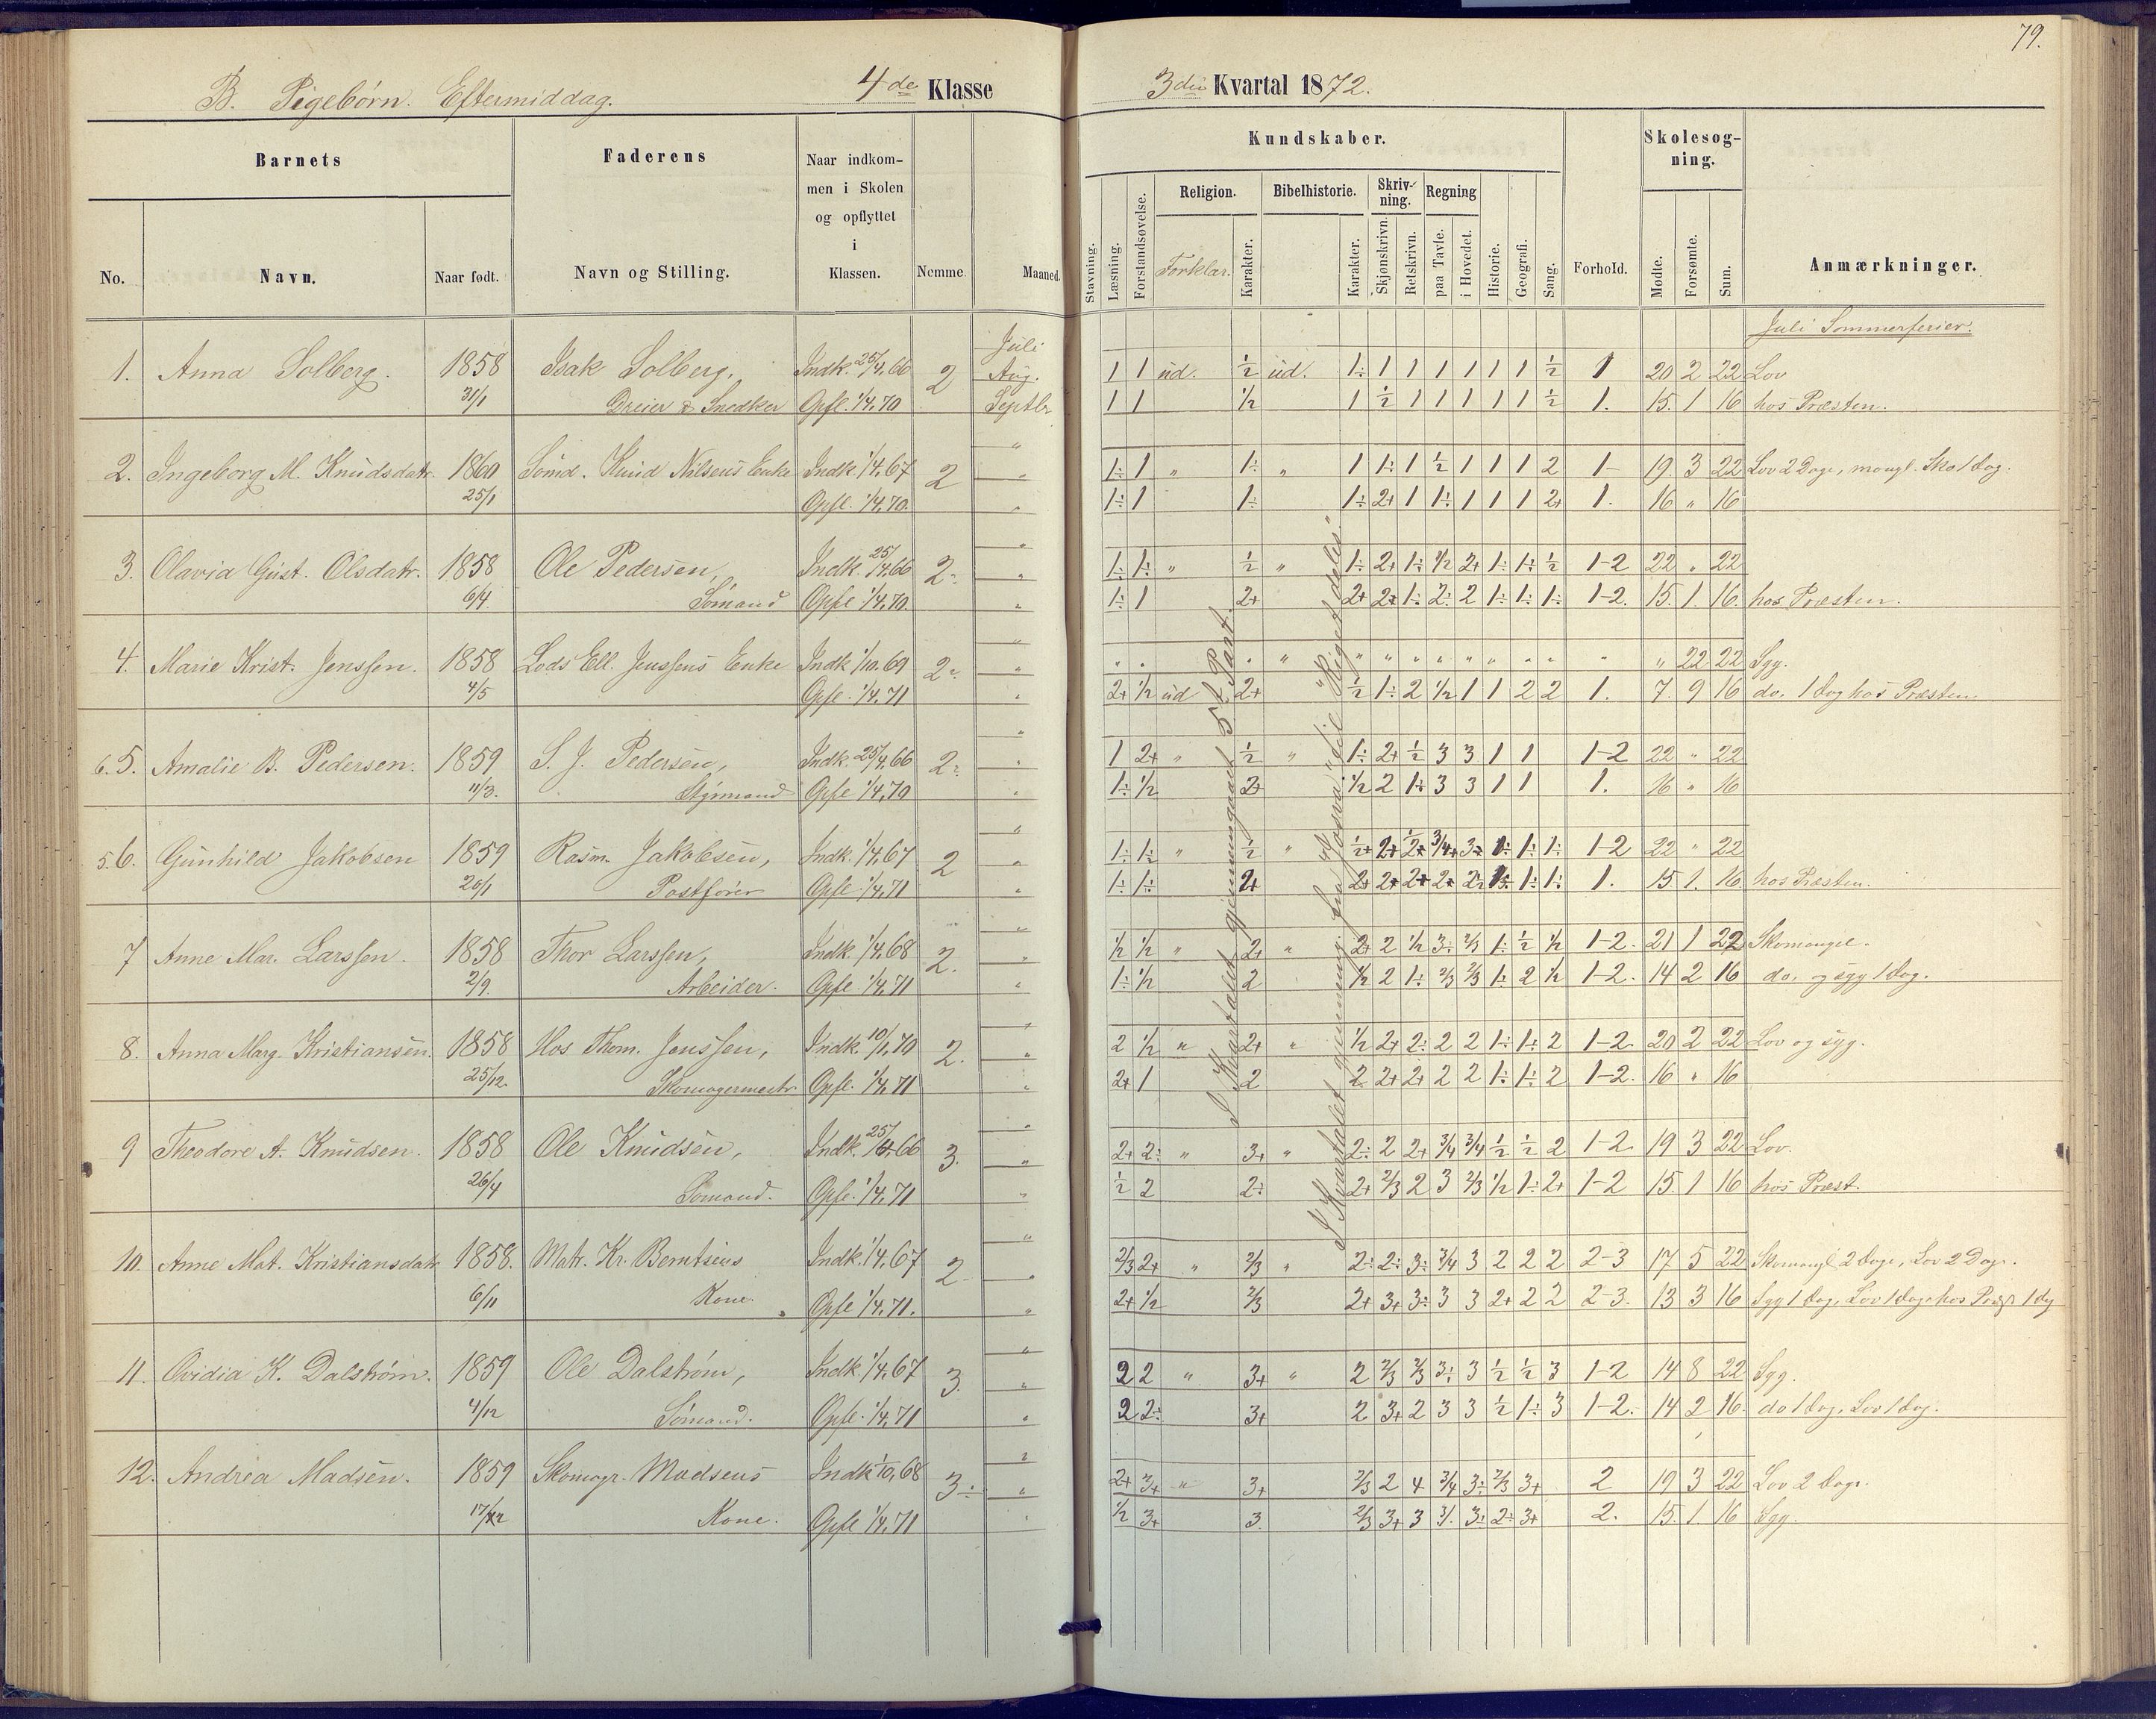 79.
B. Pigebørn. Eftermiddag. 4de Klasse
3die Kvartal 1872.
Barnets
Faderens
Naar indkommen i Skolen og opflyttet i Klassen.
Nemme.
Maaned.
No. Navn. Naar født. Navn og Stilling.
Kundskaber.
Stavning. Læsning. Forstandsøvelse. Religion. Forklar. Karakter. Bibelhistorie. Karakter. Skrivning. Skjønskrivn. Retskrivn. Regning paa Tavle. i Hovedet. Historie. Geografi. Sang.
Forhold.
Skolesøgning.
Mødte. Forsømte. Sum.
Anmærkninger.
Juli Sommerferier.
Juli
1. Anna Solberg. 1858 Isak Solberg, Indk. 25/4,66 2 Aug. 1 1 ud. ½ ud. 1÷ 1 1 1 1 1 1 ½ 1 20 2 22 Lov
31/1 Dreier & Snedker Opfl. 1/4,70 Septbr 1 1 ½ 1 ½ 1 1 1 1 1 ½ 1. 15. 1 16 hos Præsten.
2. Ingeborg M. Knudsdatr. 1860 Sømd. Knud Nilsens Enke Indk. 1/4,67 2 " 1÷ 1 " 1÷ " 1 1÷ 1 ½ 1 1 1 2 1 19 3 22 Lov 2 Dage, mangl. Sko 1 Dag.
25/1 Opfl. 1/4,70. " 1÷ 1 1÷ 1÷ 2+ 1 1÷ 1 1 1 2+ 1. 16 " 16
3. Olavia Gust. Olsdatr. 1858 Ole Pedersen, Indk. 25/4,66 2÷ " 1÷ 1÷ " ½ " 1÷ 2+ 1÷ ½ 2+ 1÷ 1÷ ½ 1-2 22 " 22
6/4. Sømand Opfl. 1/4,70. " 1÷ 1 2+ 2+ 2+ 1÷ 2÷ 2 1÷ 1÷ 1÷ 1-2. 15. 1. 16. hos Præsten.
4. Marie Krist. Jenssen. 1858 Lods Ell. Jenssens Enke Indk. 1/10.69 2÷ " " " " " " " " " " " " " " " " 22 22 Syg.
4/5 Opfl. 1/4,71 " 2+ ½ ud 2+ ½ 1÷ 2 ½ 1 1 2 2 1. 7. 9 16 do. 1 Dag hos Præsten
6. 5. Amalie B. Pedersen. 1859 S. J. Pedersen, Indk. 25/4,66 2÷ " 1 2+ " ½ " 1÷ 2+ ½ 3 3 1 1 1-2 22 " 22
11/3. Styrmand Opfl. 1/4,70 " 1÷ ½ 2+ ½ 2 1÷ 3 3 1 1 1. 16 " 16
5. 6. Gunhild Jakobsen 1859 Rasm. Jakobsen, Indk. 1/4,67. 2 " 1÷ 1÷ " ½ " 1-2 22 " 22
20/1 Postfører Opfl. 1/4,71 " 1÷ 1÷ 2+ 1. 15 1. 16 hos Præsten.
7 Anne Mar. Larssen. 1858 Thor Larssen, Indk. 1/4,68 2. " ½ ½ " 2+ " 2+ 2 ½ 3÷ 2/3 1÷ ½ ½ 1-2. 21 1 22 Skomangel.
2/9. Arbeider. Opfl. 1/4,71 " 1÷ ½ 2 ½ 2 1÷ 2/3 2/3 1÷ 2 ½ 1-2. 14 2 16 do. og syg 1 Dag.
8. Anna Marg. Kristiansen. 1858 Hos Thom. Jenssen, Indk. 10/1,70 2. " 2 ½ " 2+ " ½ 2+ 2÷ 2 2 1÷ 1÷ 2 1-2. 20 2 22 Lov og syg.
25/12. Skomagermestr. Opfl. 1/4,71 " 2+ 1 2 2 2+ 2+ 2 2 1÷ 1÷ 2 1-2. 16 " 16
9 Theodore A. Knudsen. 1858 Ole Knudsen, Indk. 25/4,66 3. " 2+ 2÷ " 3+ " 2÷ 2 2+ 3/4 3/4 ½ ½ 2 1-2. 19 3 22 Lov.
26/4 Sømand. Opfl. 1/4,71 " ½ 2 2÷ 2+ 2/3 2 3 2/3 ½ 1÷ 2+ 1-2 15. 1 16 hos Præst.
10. Anne Mat. Kristiansdatr 1858. Matr. Kr. Berntsens Indk. 1/4,67 2 " 2/3 2+ " 2/3 " 2÷ 2÷ 3÷ 3/4 3 2 2 2 2-3 17 5 22 Skomangl 2 Dage, Lov 2 Dag.
6/11 Kone. Opfl. 1/4,71. " 2+ ½ 2/3 2+ 3+ 3÷ 3 3 2+ 2 2 2-3. 13 3 16 Syg 1 Dag, Lov 1 Dag, hos Præst 1 dg
11. Ovidia K. Dalstrøm. 1859 Ole Dalstrøm, Indk. 1/4,67 3. " 2 2 " 3+ " 2 2/3 2/3 3÷ 3 ½ ½ 3 1-2 14 8 22 Syg.
4/12 Sømand. Opfl. 1/4,71 " 2 2÷ 3+ 2 3+ 2 3 3 ½ 1÷ 3 1-2. 14 2 16. do 1 Dag, Lov 1 Dag.
12. Andrea Madsen. 1859 Skomgr. Madsens Indk 1/10,68 3÷ " 2+ 3+ " 3+ 2/3 2 4 3/4 3÷ 2/3 3+ 2 19 3 22 Lov 2 Dage.
17/12 Kone. Opfl 1/4,71 " ½ 3+ 3. 2/3 3+ 3 3÷ 2÷ 3+ 2. 15. 1. 16 Syg.
I Kvartalet gjennemgaaet 5t Part.
I Kvartalet gjennemg. fra "Josva" til "Riget deles".